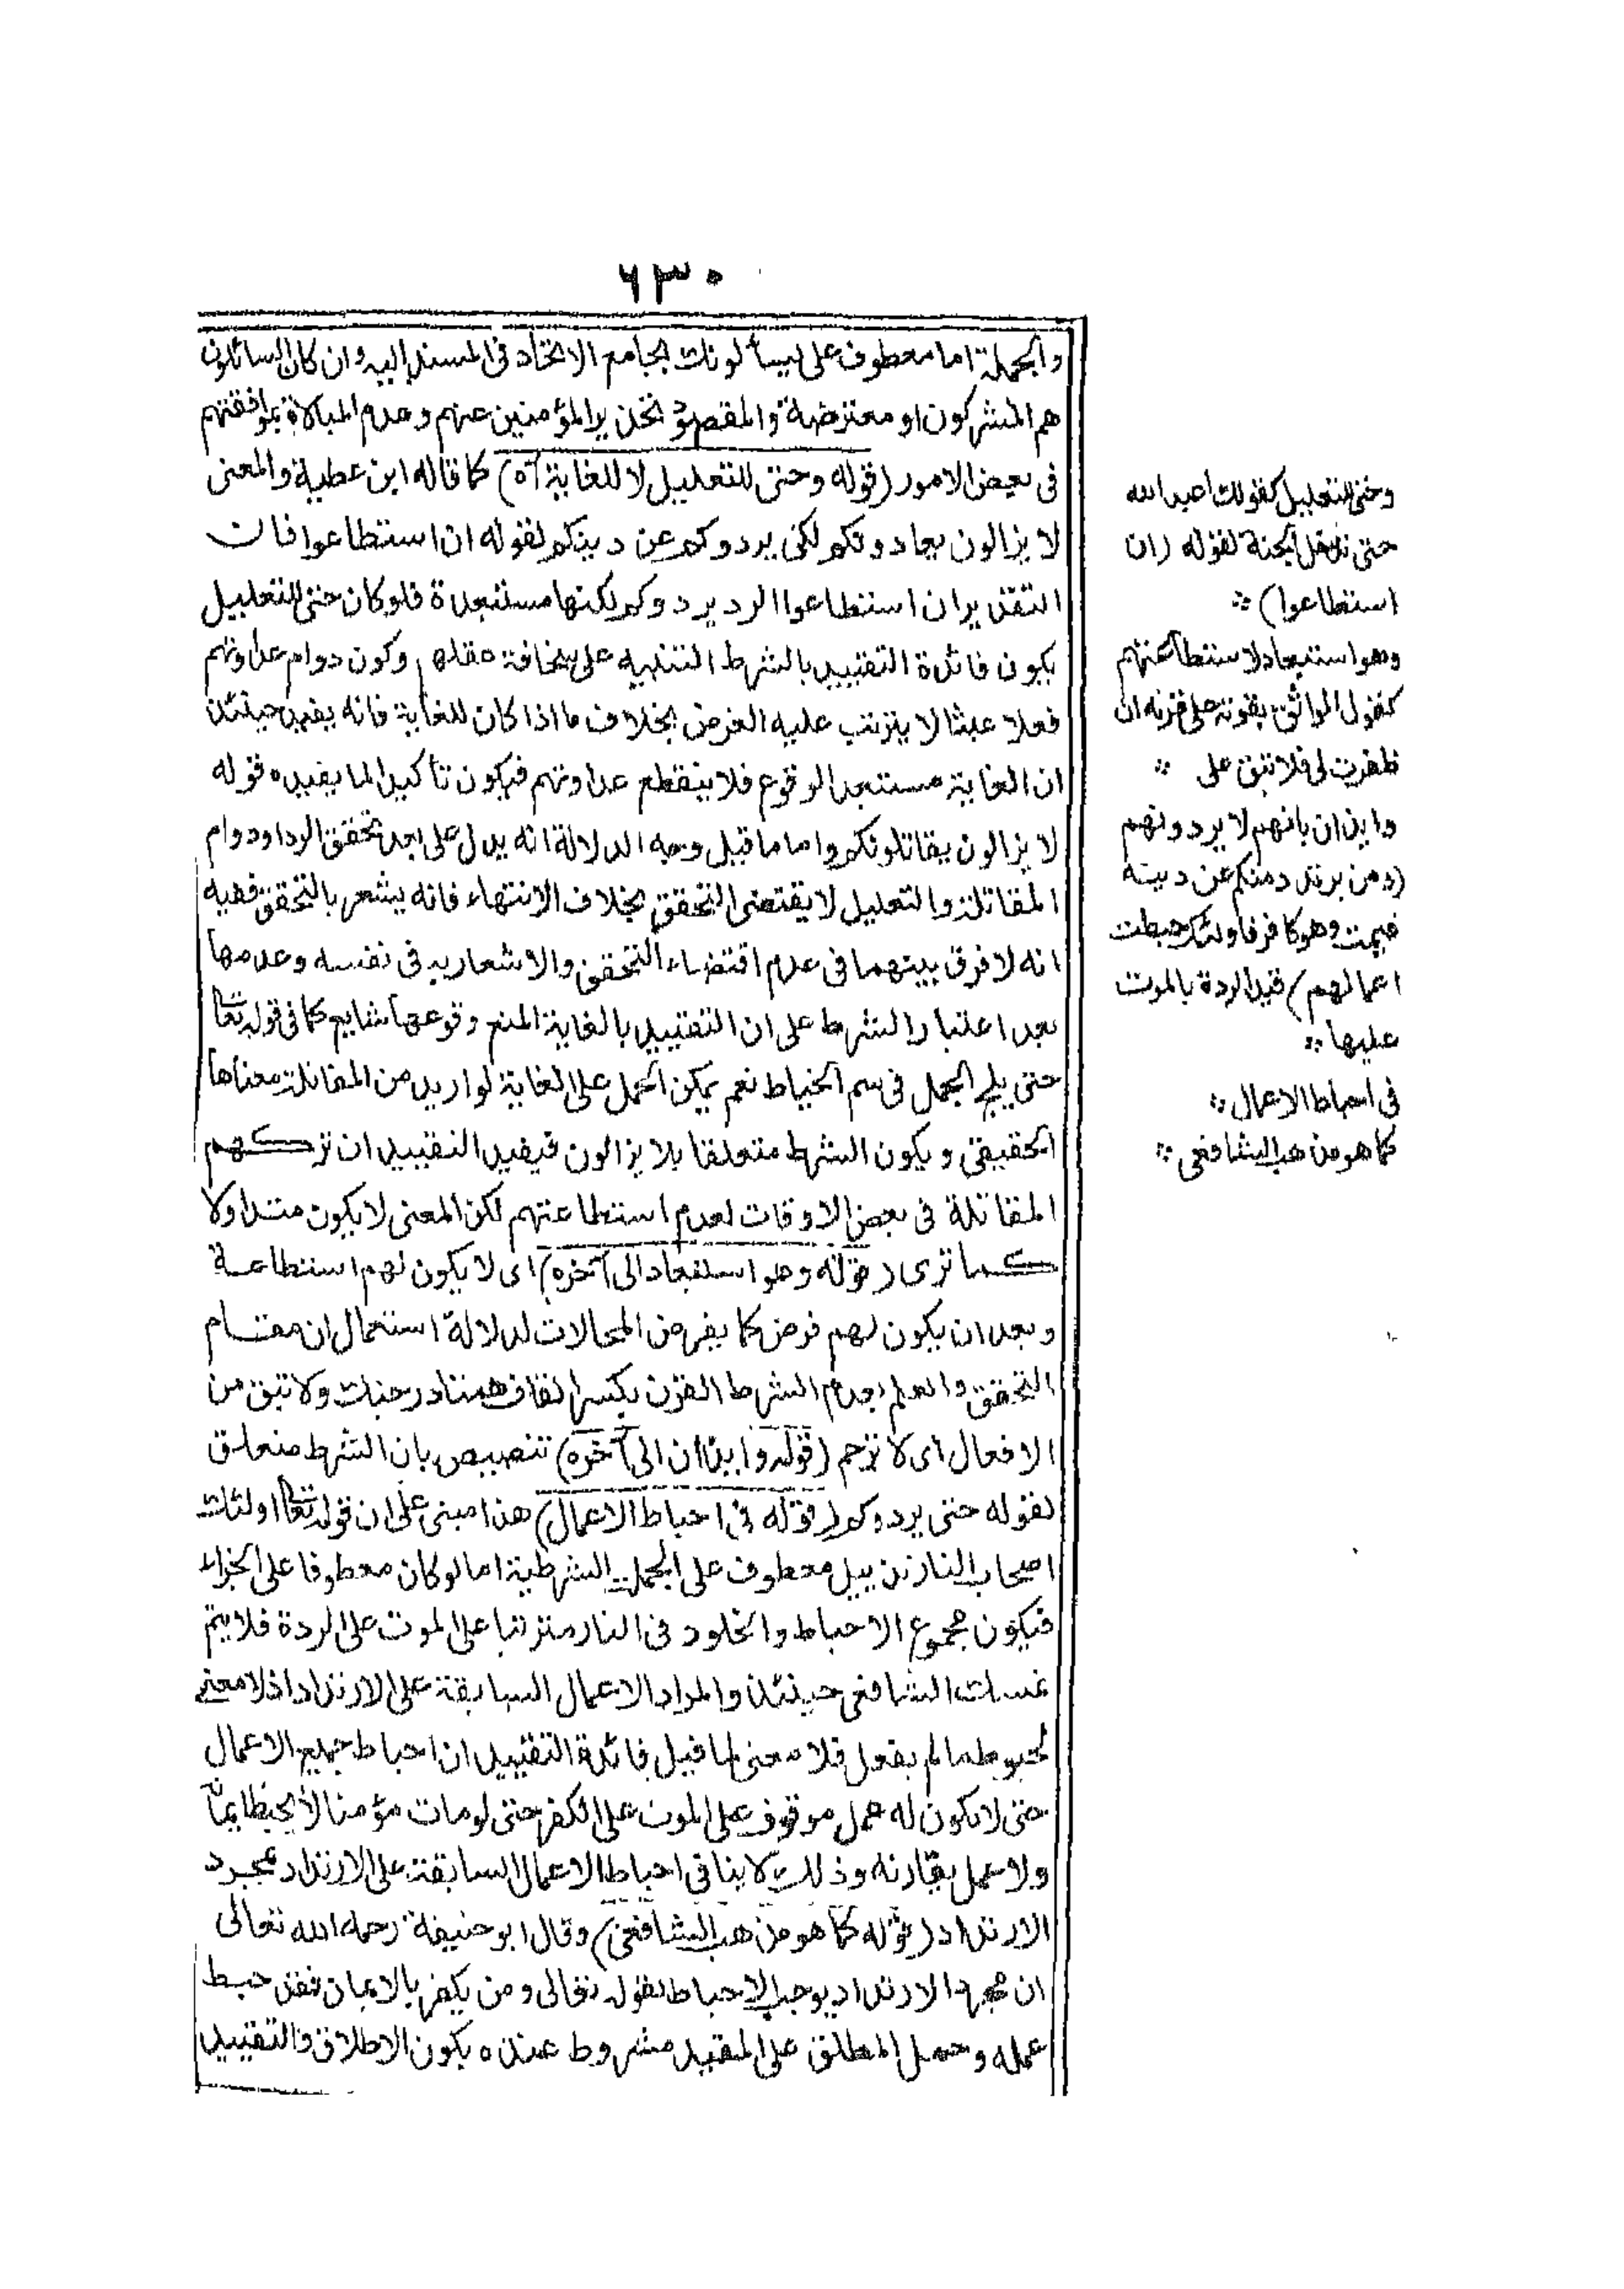 ٦٣٠
والجملة اما معطوف على يسألونك بجامع الاتحاد فى المسند اليه وان كان السائلون
هم المشركون او معترضة والمقصود تحذير المؤمنين عنهم وعدم المبالاة بموافقتهم
فى بعض الامور (قوله وحتى للتعليل لا للغاية آه) كما قاله ابن عطية والمعنى
لا يزالون يعادونكم لكى يردوكم عن دينكم لقوله ان استطاعوا فان
التقدير ان استطاعوا الرد يردوكم لكنها مستبعدة فلو كان حتى للتعليل
يكون فائدة التقييد بالشرط التنبيه على سخافة عقلهم وكون دوام عداوتهم
فعلا عبثا لا يترتب عليه الغرض بخلاف ما اذا كان للغاية فانه يفيد حينئذ
ان الغاية مستبعد الوقوع فلا ينقطع عداوتهم فيكون تأكيدا لما يفيده قوله
لا يزالون يقاتلونكم واما ما قيل وجه الدلالة انه يدل على بعد تحقق الرد او دوام
المقاتلة والتعليل لا يقتضى التحقق بخلاف الانتهاء فانه يشعر بالتحقق ففيه
انه لا فرق بينهما فى عدم اقتضاء التحقق والاشعار به فى نفسه وعدمها
بعد اعتبار الشرط على ان التقييد بالغاية الممتنع وقوعها شايع كما فى قوله تعالى
حتى يلج الجمل فى سم الخياط نعم يمكن الحمل على الغاية لو اريد من المقاتلة معناها
الحقيقى ويكون الشرط متعلقا بلا يزالون فيفيد التقييد ان تركهم
المقاتلة فى بعض الاوقات لعدم استطاعتهم لكن المعنى لا يكون متداولا
كما ترى (قوله وهو استبعاد الى آخره) اى لا يكون لهم استطاعة
وبعد ان يكون لهم فرض كما يفرض المحالات لدلالة استعمال ان مقام
التحقق والعلم بعدم الشرط القرن بكسر القاف همتا در جنك ولا تبق من
الافعال اى لا ترحم (قوله وايذان الى آخره) تنصيص بان الشرط متعلق
لقوله حتى يردوكم (قوله فى احباط الاعمال) هذا مبنى على ان قوله تعالى اولئك
اصحاب النار تذييل معطوف على الجملة الشرطية اما لو كان معطوفا على الجزاء
فيكون مجموع الاحباط والخلود فى النار مترتبا على الموت على الردة فلا يتم
تمسك الشافعى حينئذ والمراد الاعمال السابقة على الارتداد اذ لا معنى
لحبوط ما لم يفعل فلا معنى لما قيل فائدة التقييد ان احباط جميع الاعمال
حتى لا يكون له عمل موقوف على الموت على الكفر حتى لو مات مؤمنا لا يحبط ايمانه
ولا عمل يقارنه وذلك لا ينافى احباط الاعمال السابقة على الارتداد بمجرد
الارتداد (قوله كما هو مذهب الشافعى) وقال ابو حنيفة رحمه الله تعالى
ان مجرد الارتداد يوجب الاحباط لقوله تعالى ومن يكفر بالايمان فقد حبط
عمله وحمل المطلق على المقيد مشروط عنده بكون الاطلاق والتقييد
وحتى للتعليل كقولك اعبد الله
حتى تدخل الجنة لقوله (ان
استطاعوا) ؛
وهو استبعاد لاستطاعتهم
كقول الواثق بقوته على قرنه ان
ظفرت لى فلا تبق على ؛
وايذان بانهم لا يردونهم
(ومن يرتدد منكم عن دينه
فيمت وهو كافر فاولئك حبطت
اعمالهم) قيد الردة بالموت
عليها ؛
فى احباط الاعمال ؛
كما هو مذهب الشافعى ؛